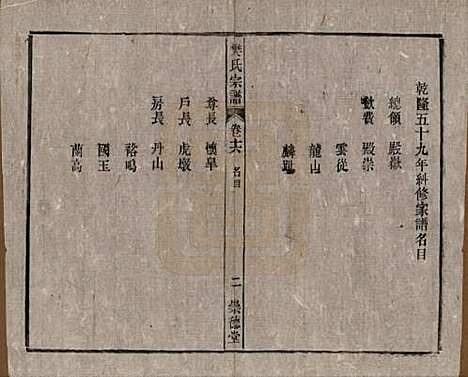 乾隆五十九年糾修家譜名目
總領 殿嶽
歛費 殿崇
雲從
龍山
麟趾
樊氏宗譜 卷十六 名目 二 崇德堂
尊長 懷阜
戶長 虎墩
房長 丹山
裕鳴
國玉
蘭高